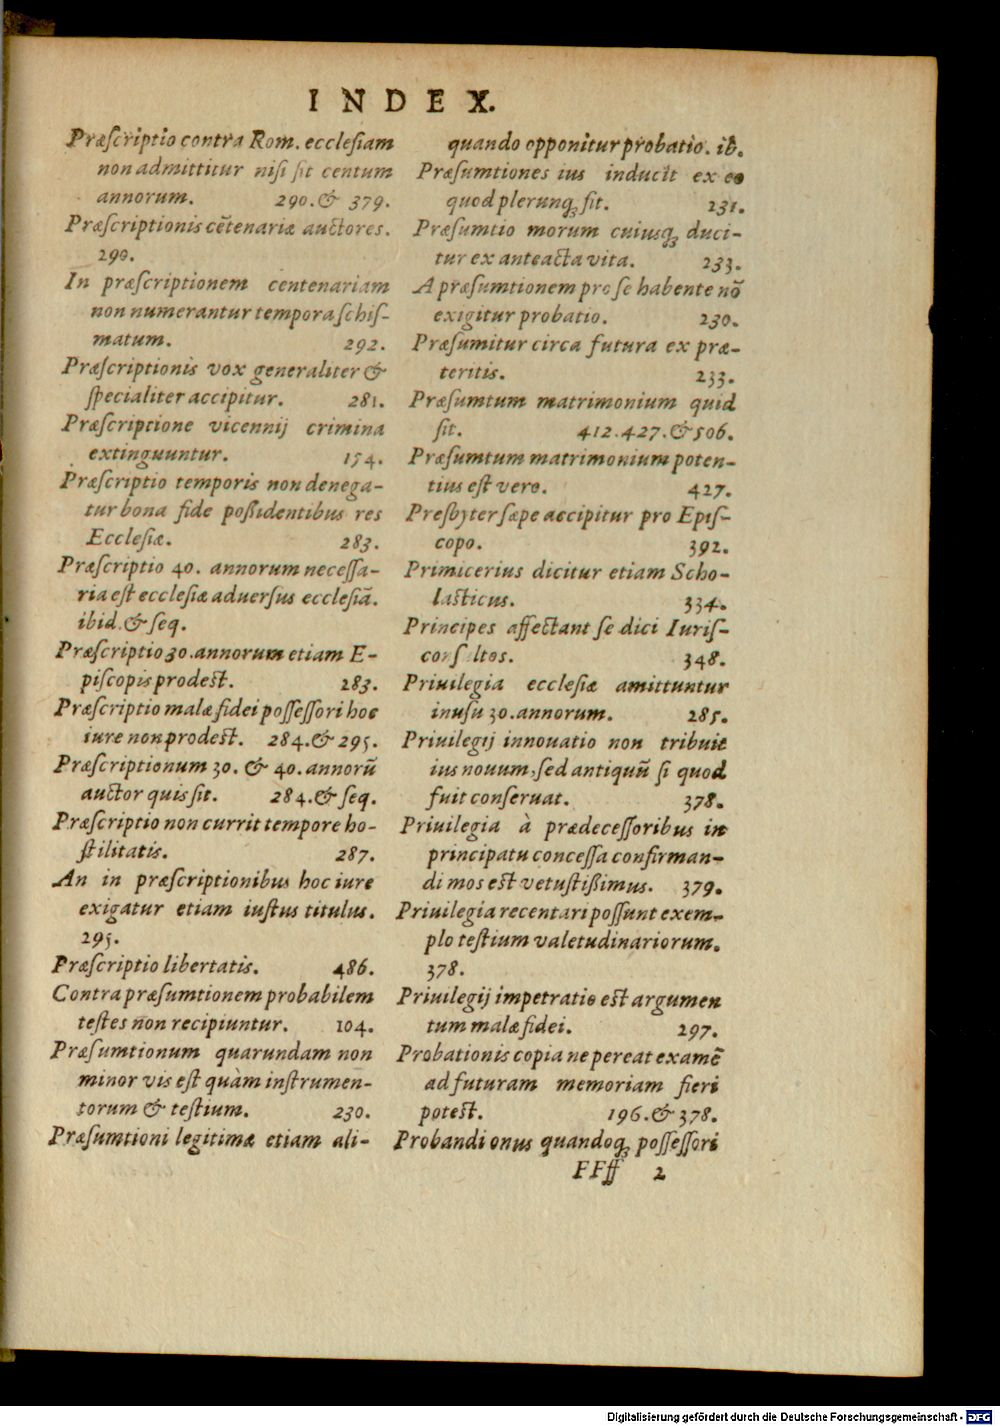 INDEX.
Præſcriptio contra Rom. eccleſiam
non admittitur niſi ſit centum
annorum. 290. & 379.
Præſcriptionis cẽtenariæ auctores.
290.
In præſcriptionem centenariam
non numerantur tempora ſchiſ-
matum. 292.
Præſcriptionis vox generaliter &
ſpecialiter accipitur. 281.
Præſcriptione vicennij crimina
extinguuntur. 154.
Præſcriptio temporis non denega-
tur bona fide poßidentibus res
Eccleſiæ. 283.
Præſcriptio 40. annorum neceſſa-
ria eſt eccleſiæ aduerſus eccleſiã.
ibid. & ſeq.
Præſcriptio 30. annorum etiam E-
piſcopis prodeſt. 283.
Præſcriptio malæ fidei poſſeſſori hoc
iure non prodeſt. 284. & 295.
Præſcriptionum 30. & 40. annorũ
auctor quis ſit. 284. & ſeq.
Præſcriptio non currit tempore ho-
ſtilitatis. 287.
An in præſcriptionibus hoc iure
exigatur etiam iuſtus titulus.
295.
Præſcriptio libertatis. 486.
Contra præſumtionem probabilem
teſtes non recipiuntur. 104.
Præſumtionum quarundam non
minor vis eſt quàm inſtrumen-
torum & teſtium. 230.
Præſumtioni legitimæ etiam ali-
quando opponitur probatio. ib.
Præſumtiones ius inducit ex eo
quod plerunq; fit. 231.
Præſumtio morum cuiusq; duci-
tur ex anteacta vita. 233.
A præſumtionem pro ſe habente nõ
exigitur probatio. 230.
Præſumitur circa futura ex præ-
teritis. 233.
Præſumtum matrimonium quid
ſit. 412. 427. & 506.
Præſumtum matrimonium poten-
tius eſt vero. 427.
Preſbyter ſæpe accipitur pro Epiſ-
copo. 392.
Primicerius dicitur etiam Scho-
laſticus. 334.
Principes affectant ſe dici Iuriſ-
conſ ltos. 348.
Priuilegia eccleſiæ amittuntur
inuſu 30. annorum. 285.
Priuilegij innouatio non tribuit
ius nouum, ſed antiquũ ſi quod
fuit conſeruat. 378.
Priuilegia à prædeceſſoribus in
principatu conceſſa confirman-
di mos eſt vetuſtißimus. 379.
Priuilegia recentari poſſunt exem-
plo teſtium valetudinariorum.
378.
Priuilegij impetratio eſt argumen
tum malæ fidei. 297.
Probationis copia ne pereat examẽ
ad futuram memoriam fieri
poteſt. 196. & 378.
Probandi onus quandoq; poſſeſſori
FFff 2
Digitalisierung gefördert durch die Deutsche Forschungsgemeinschaft - DFG